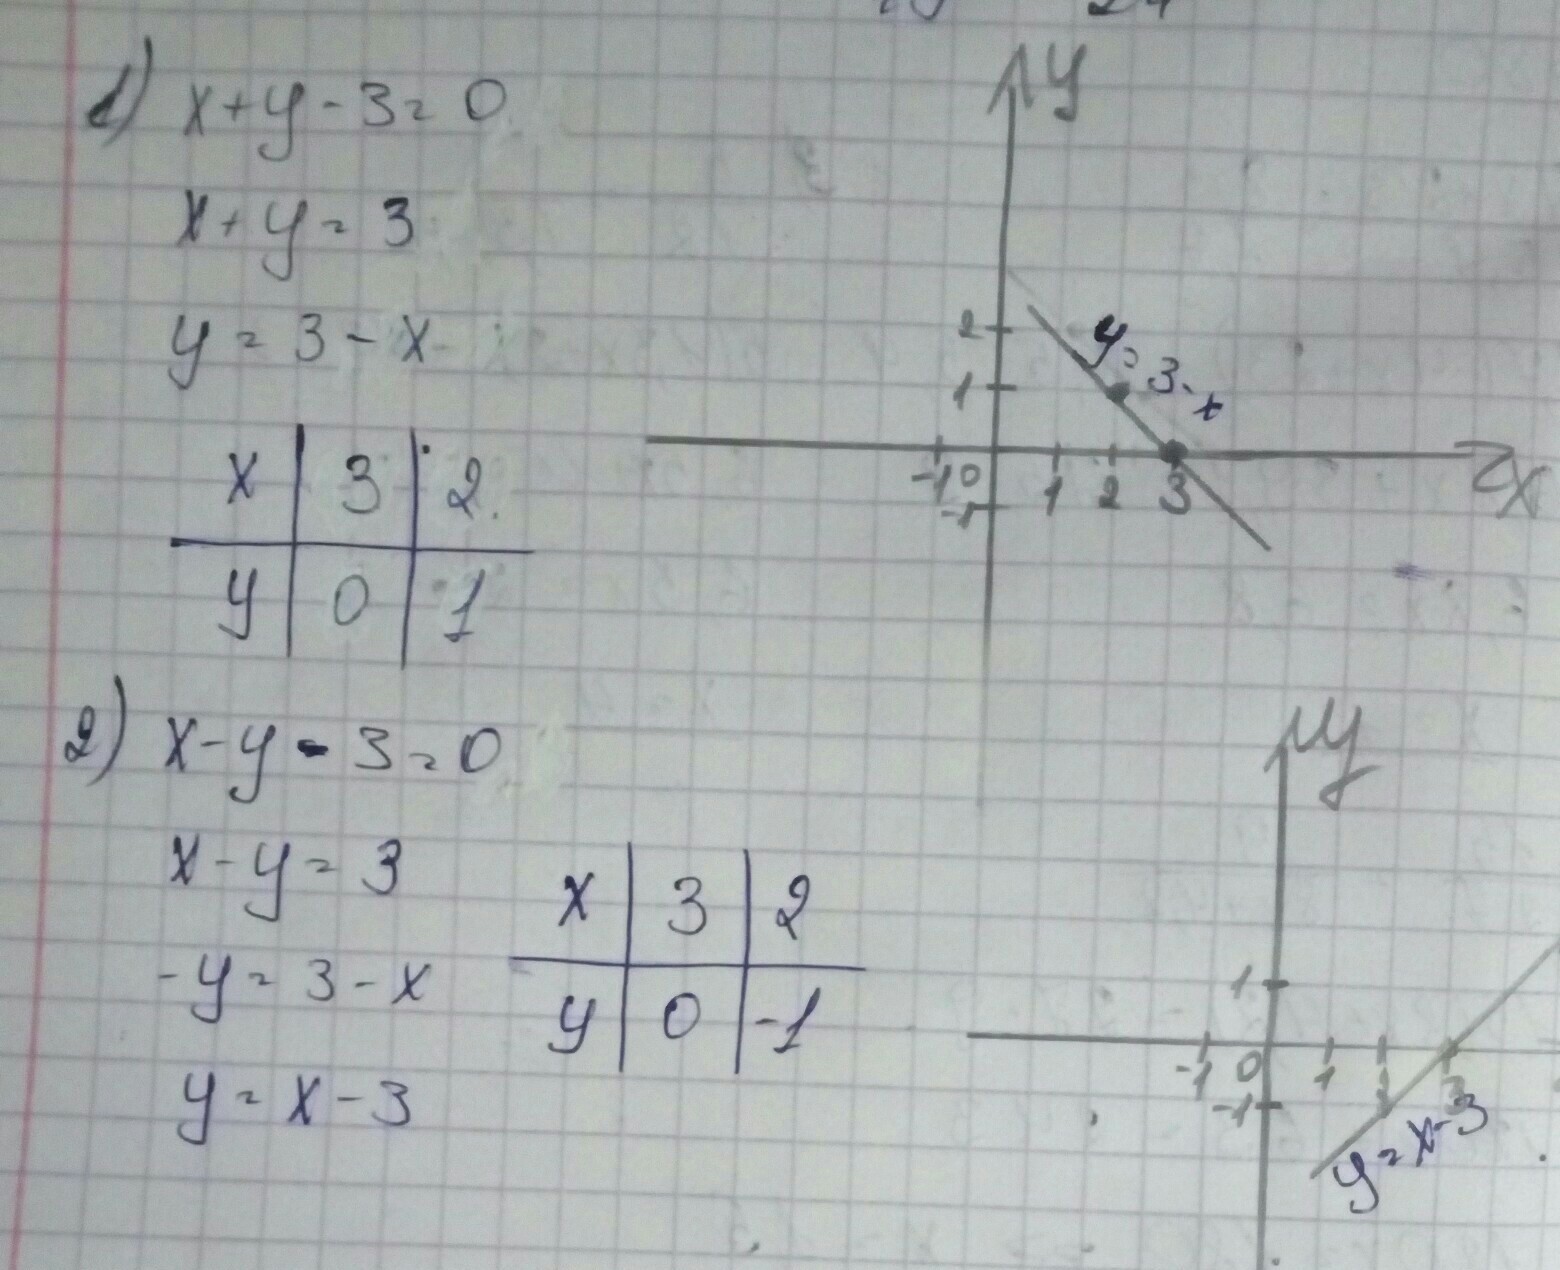 1) x+y-3=0
x+y=3
y=3-x
x | 3 | 2
y | 0 | 1
y
2
1
y=3-x
-1 0 1 2 3 x
-1
2) x-y-3=0
x-y=3
-y=3-x
y=x-3
x | 3 | 2
y | 0 | -1
y
1
-1 0 1 2 3
-1
y=x-3